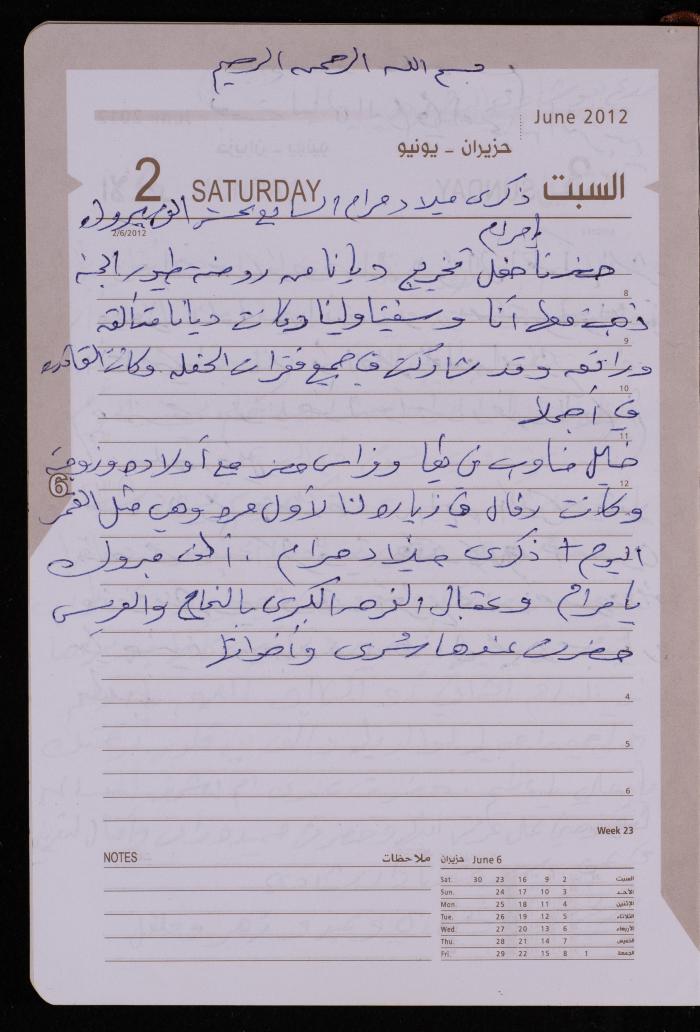 بسم الله الرحمن الرحيم
June 2012
حزيران - يونيو
2 SATURDAY السبت
ذكرى ميلاد مرام السابع عشر الف مبروك
2/6/2012
يا مرام
حضرنا حفل تخريج ديانا من روضة طيور الجنة
8
ذهبت معها أنا وسفيتا ولينا وكانت ديانا متألقه
9
ورائعه وقد شاركت في جميع فقرات الحفله وكانت
10
في أجمل
11
خليل وفراس حضر مع أولاده وزوجته
12
6
وكانت في زياره لنا لأول مره وهي مثل القمر
اليوم + ذكرى ميلاد مرام . ألف مبروك
يا مرام وعقبال الفرحه الكبرى بالنجاح والعريس
حضرت عندها بشرى وأخواتها
4
5
6
Week 23
NOTES ملاحظات
June 6 حزيران
Sat. 30 23 16 9 2 السبت
Sun. 24 17 10 3 الأحد
Mon. 25 18 11 4 الإثنين
Tue. 26 19 12 5 الثلاثاء
Wed. 27 20 13 6 الأربعاء
Thu. 28 21 14 7 الخميس
Fri. 29 22 15 8 1 الجمعة